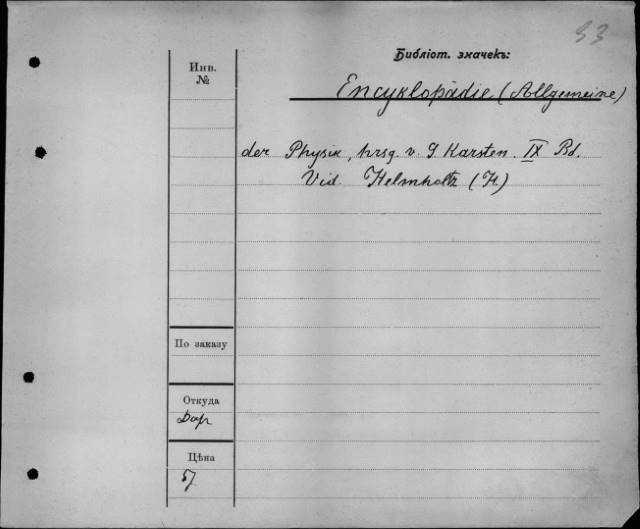 53
Библіот. значекъ:
Инв.
№
Encyklopädie (Allgemeine)
der Physik, hrsg. v. G. Karsten. IX Bd.
Vid. Helmholtz (H.)
По заказу
Откуда
Дар
Цѣна